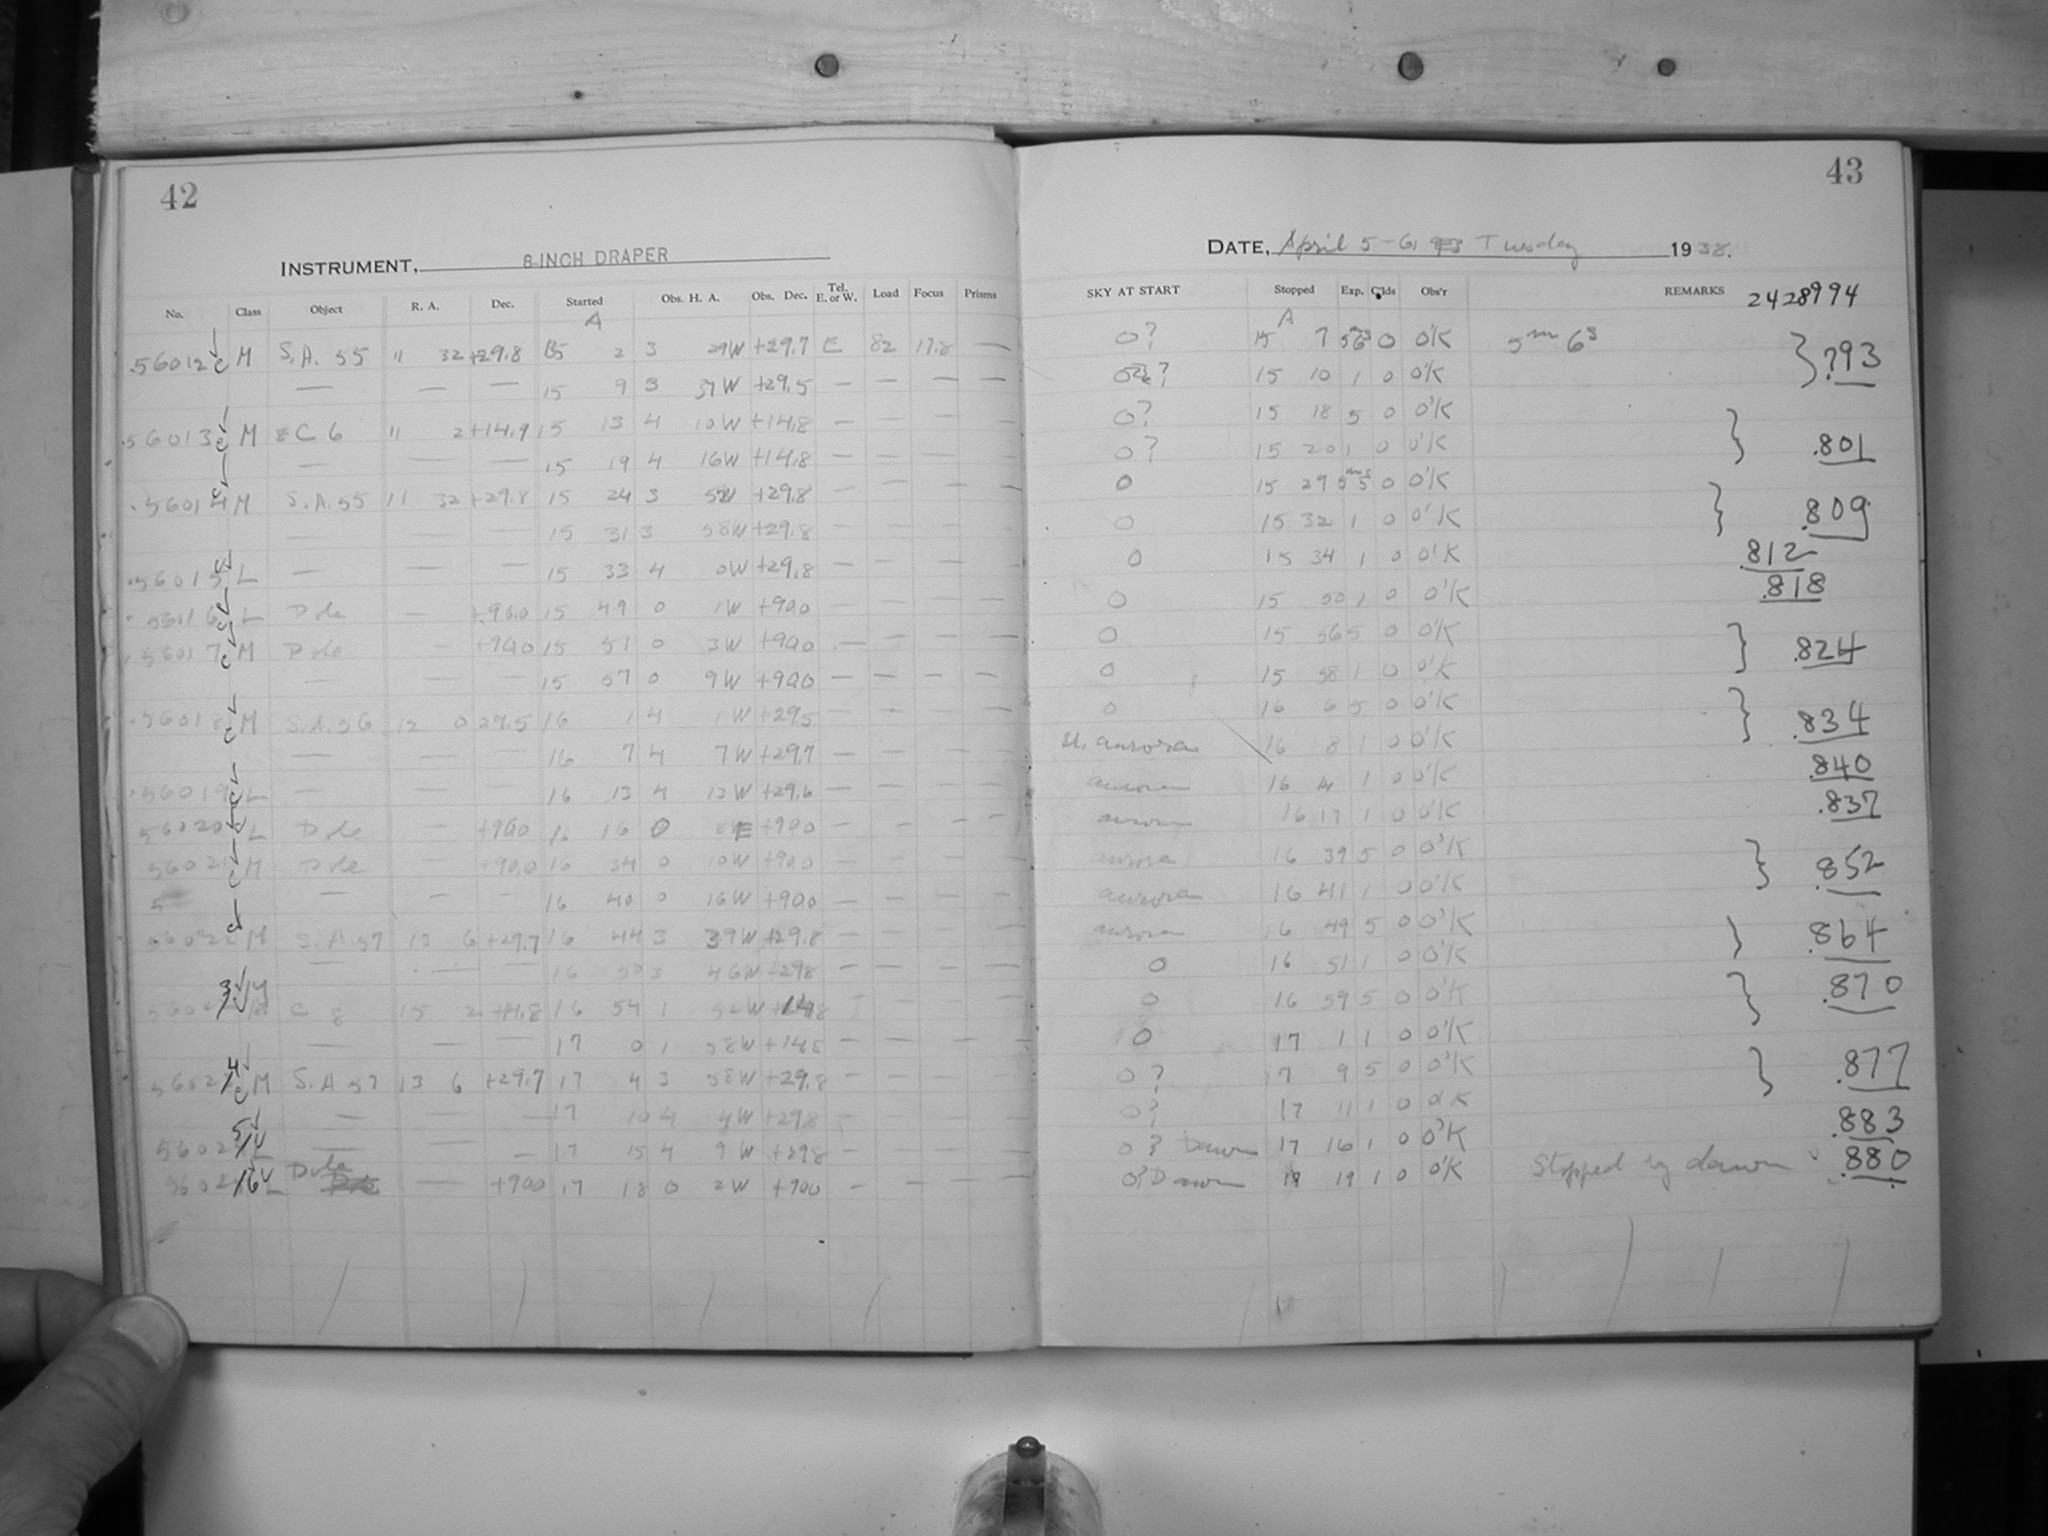 42
INSTRUMENT, 8-INCH DRAPER
No. Class Object R. A. Dec. Started Obs. H. A. Obs. Dec. Tel. E. or W. Load Focus Prisms
A
.56012 c M S.A. 55 11 32 +29.8 15 2 3 29W +29.7 E 82 17.8 —
— — — 15 9 3 37W +29.5 — — — —
.56013 c M C 6 11 2 +14.9 15 13 4 10W +14.8 — — — —
— — — 15 19 4 16W +14.8 — — — —
.56014 M S.A. 55 11 32 +29.8 15 24 3 52W +29.8 — — — —
— — — 15 31 3 58W +29.8 — — — —
.56015 L — — — 15 33 4 0W +29.8 — — — —
.56016 L Pole — +90.0 15 49 0 1W +90.0 — — — —
.56017 c M Pole — +90.0 15 51 0 3W +90.0 — — — —
— — — 15 57 0 9W +90.0 — — — —
.56018 c M S.A. 56 12 0 29.5 16 1 4 1W +29.5 — — — —
— — — 16 7 4 7W +29.7 — — — —
.56019 L — — — 16 13 4 13W +29.6 — — — —
56020 L Pole — +90.0 16 16 0 E +90.0 — — — —
56021 c M Pole — +90.0 16 34 0 10W +90.0 — — — —
— — — 16 40 0 16W +90.0 — — — —
56022 M S.A. 57 13 6 +29.7 16 44 3 39W +29.8 — — — —
— — — 16 50 3 46W +29.8 — — — —
56023 M C 8 15 2 +14.8 16 54 1 52W +14.8 — — —
— — — 17 0 1 58W +14.8 — — — —
56024 c M S.A. 57 13 6 +29.7 17 4 3 58W +29.8 — — — —
— — — 17 10 4 4W +29.8 — — — —
56025 L — — — 17 15 4 9W +29.8 — — — —
56026 L Pole — +90.0 17 18 0 2W +90.0 — — — —
43
DATE, April 5-6, Tuesday 1938.
SKY AT START Stopped Exp. Clds Obs'r REMARKS 2428994
A
0? 15 7 0 O'K 5m 6s } .793
15 10 1 0 O'K
0? 15 18 5 0 O'K } .801
0? 15 20 1 0 O'K
0 15 29 0 O'K } .809
0 15 32 1 0 O'K
0 15 34 1 0 O'K .812
0 15 50 1 0 O'K .818
0 15 56 5 0 O'K } .824
0 15 58 1 0 O'K
0 16 6 5 0 O'K } .834
sl. aurora 16 8 1 0 O'K
aurora 16 14 1 0 O'K .840
aurora 16 17 1 0 O'K .837
aurora 16 39 5 0 O'K } .852
aurora 16 41 1 0 O'K
aurora 16 49 5 0 O'K } .864
0 16 51 1 0 O'K
0 16 59 5 0 O'K } .870
0 17 1 1 0 O'K
0? 17 9 5 0 O'K } .877
0? 17 11 1 0 O'K
0? Dawn 17 16 1 0 O'K .883
0? Dawn 19 1 0 O'K Stopped by dawn .880